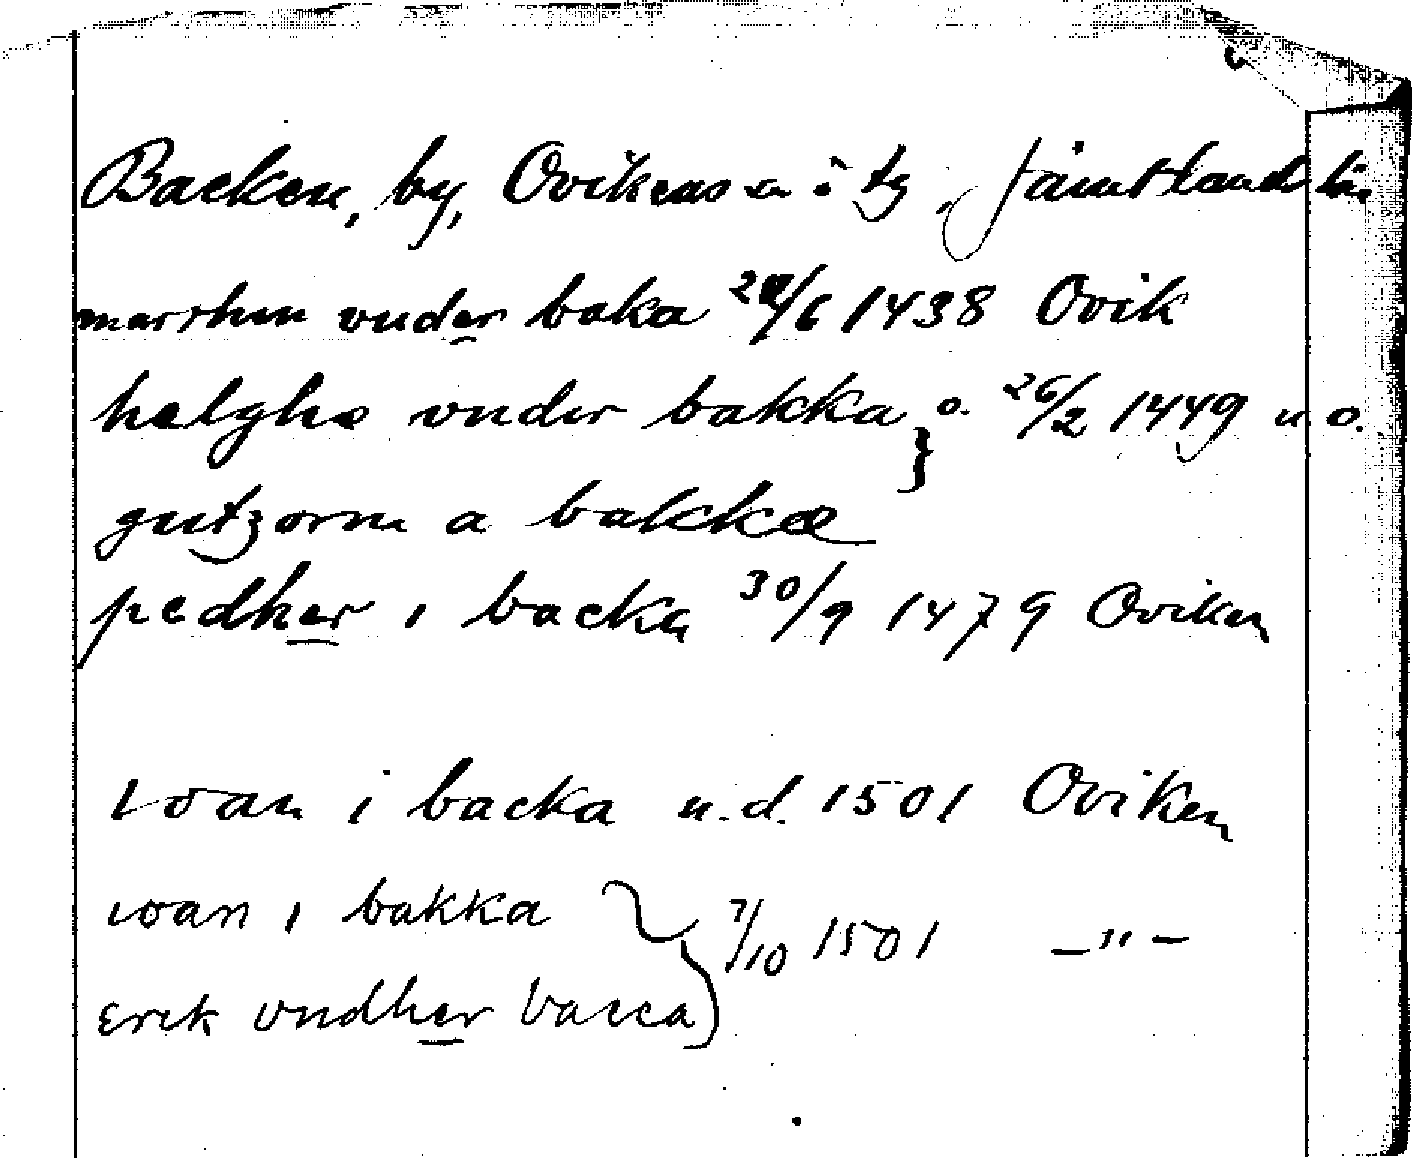 Backen, by, Ovikens sn i tg, Jämtlands län
marthin vnder baka 24/6 1438 Ovik
helghe vnder bakka } o. 26/2 1449 u.o.
gutzorm a bakkæ
pedher i backa 30/9 1479 Oviken
ioan i backa u.d. 1501 Oviken
ioan i bakka } 7/10 1501 –"–
Erik vndher bacca